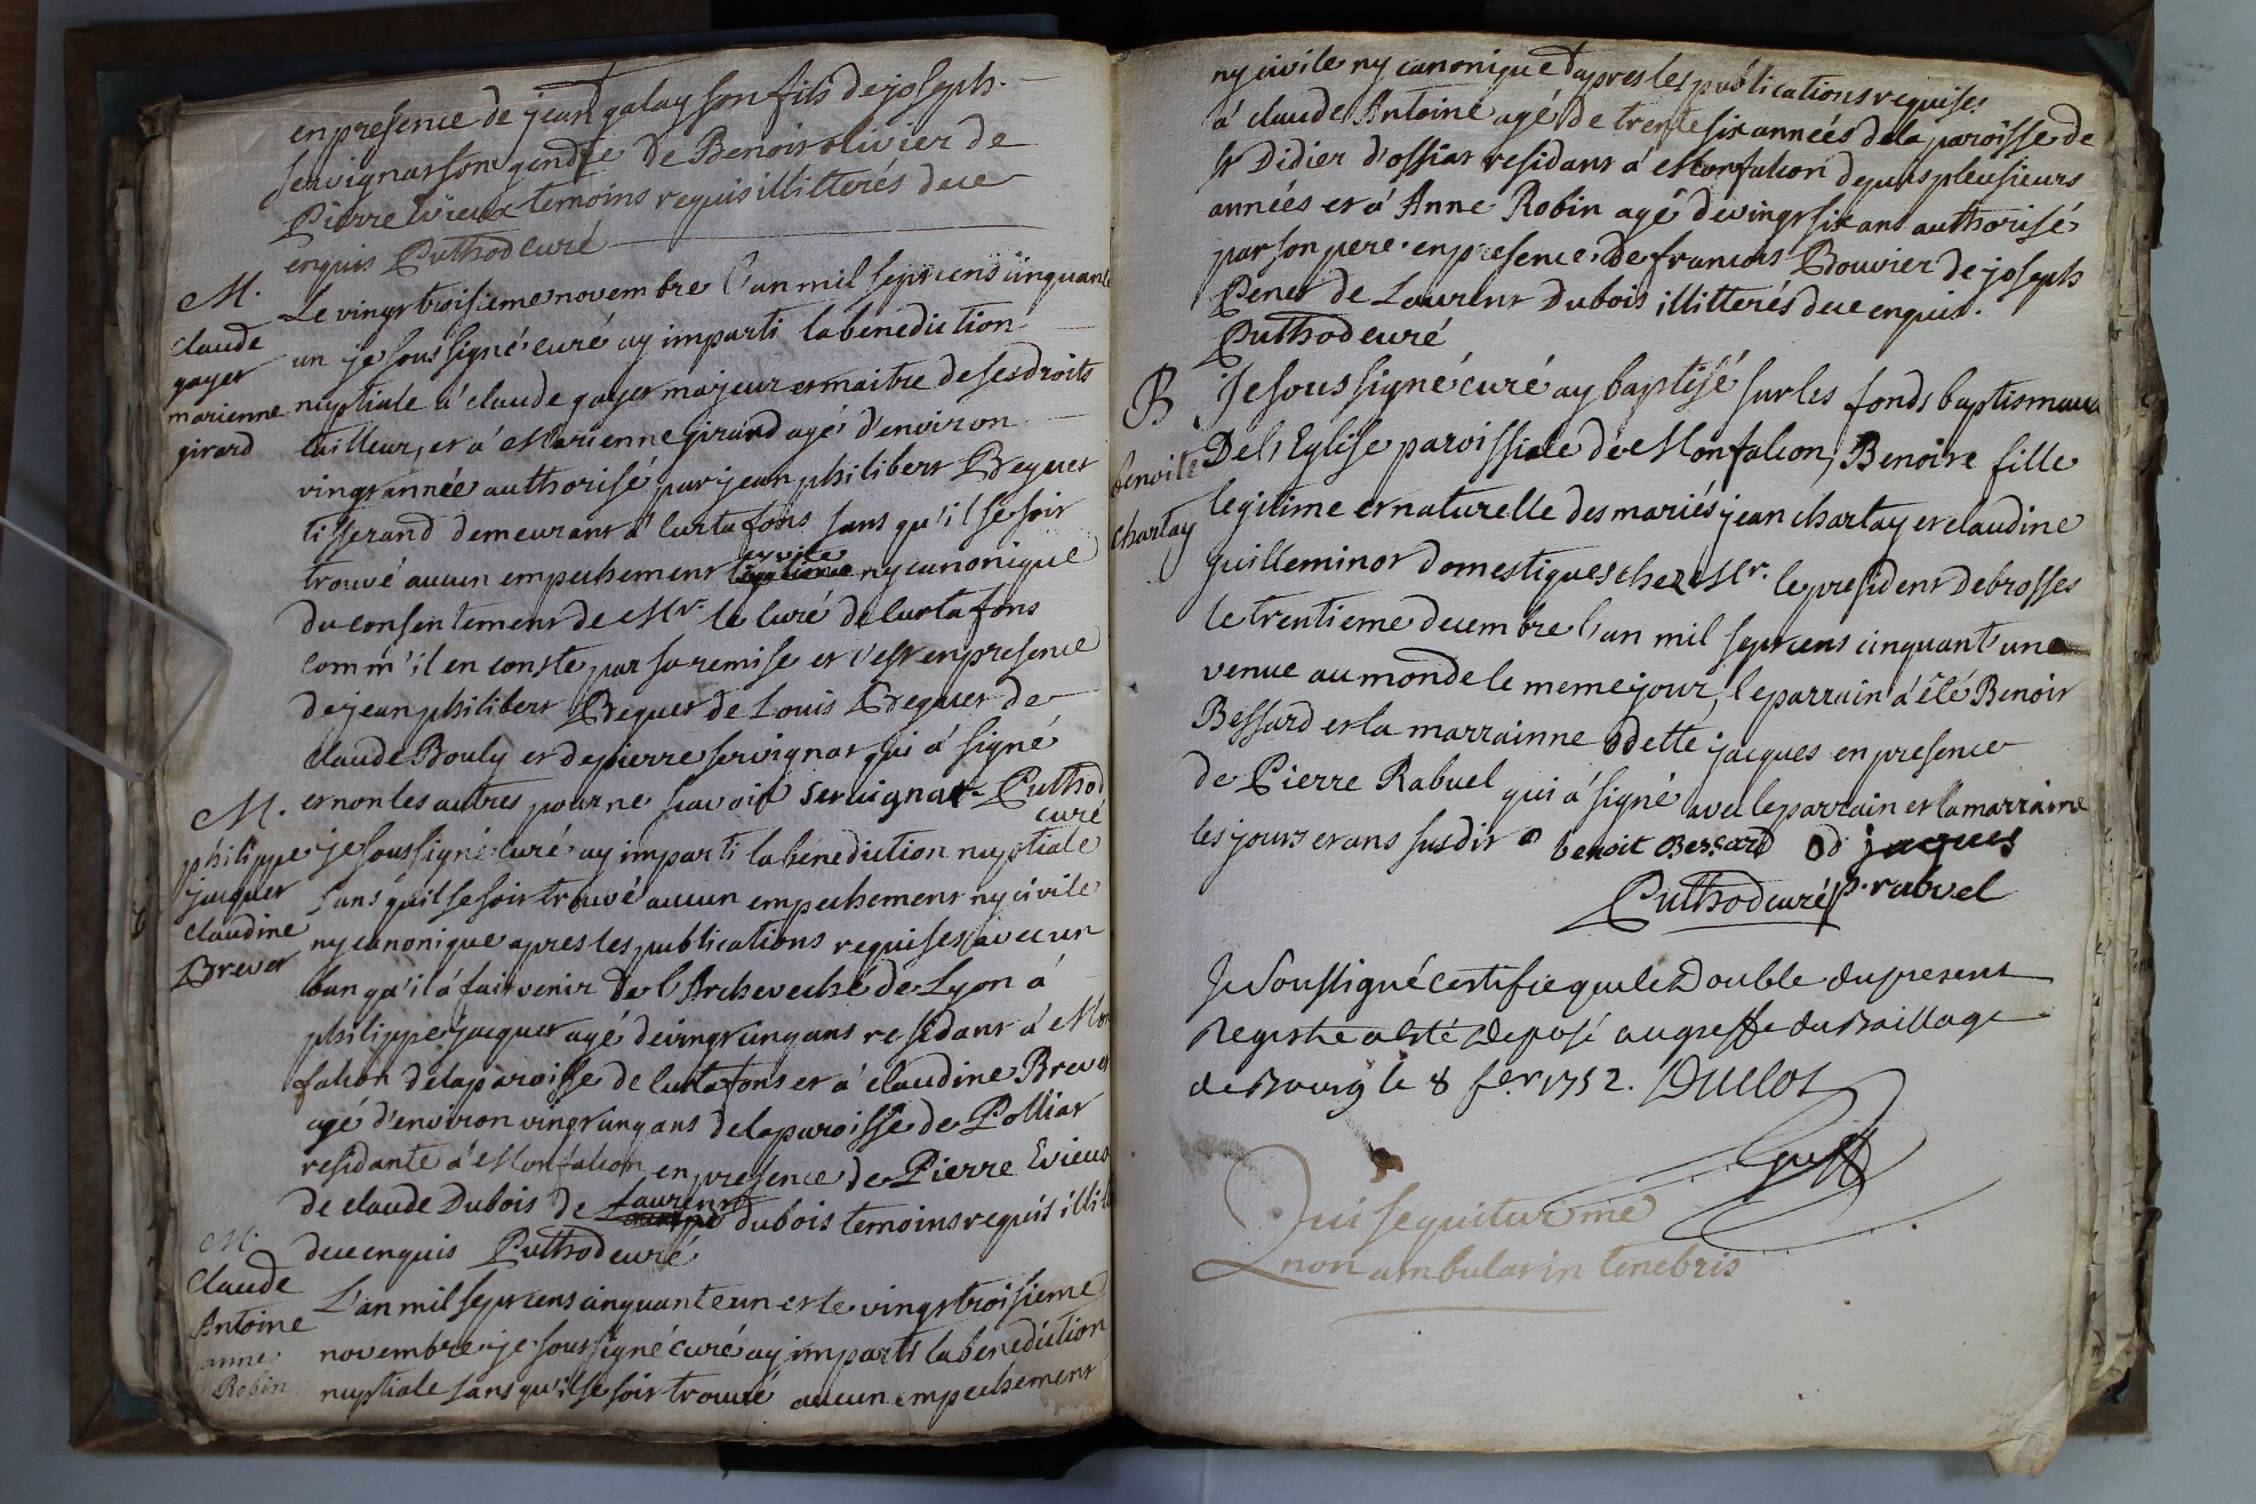 en presence de jean galay son fils de joseph
servignat son gendre de Benoit olivier de
Pierre Evieux temoins requis illitterés de ce
enquis Puthod curé
M.
claude
gayet
marienne
girard
Le vingt troisieme novembre l'an mil sept cens cinquante
un je sous signé curé ay imparti la benediction
nuptiale á claude gayet majeur et maitre de ses droits
tailleur, et á Marienne girard agé d'environ
vingt année authorisé par jean philibert Breguet
tisserand demeurant á Curtafons sans qu'il se soit
trouvé aucun empechement cyvile ny canonique
du consentement de Mr. le curé de Curtafons
comm'il en conste par sa remise et c'est en presence
de jean philibert Breguet de Louis Breguet de
claude Bouly et de pierre servignat qui á signé
et non les autres pour ne scavoir servignat Puthod
curé
M.
philippe
jacquet
claudine
Brevet
je soussigné curé ay imparti la benediction nuptiale
sans qu'il se soit trouvé aucun empechement ny civile
ny canonique apres les publications requises avec un
ban qu'il á fait venir de l'Archeveché de Lyon á
philippe jacquet agé de vingt cinq ans residant á Mon
falcon de la paroisse de Curtafons et á claudine Brevet
agé d'environ vingt cinq ans de la paroisse de Polliat
residante á Monfalcon en presence de Pierre Evieux
de claude Dubois de Laurent dubois temoins requis illit
de ce enquis Puthod curé
M.
Claude
Antoine
anne
Robin
L'an mil sept cens cinquante un et le vingt troisieme
novembre je sous signé curé ay imparti la benediction
nuptiale sans qu'il se soit trouvé aucun empechement
ny civile ny canonique et apres les publications requises
á claude Antoine agé de trente six années de la paroisse de
st Didier d'ossiat residant á Monfalcon depuis pleusieurs
années et á Anne Robin agé de vingt six ans authorisé
par son pere en presence de francois Bouvier de joseph
Penet de Laurent Dubois illitterés de ce enquis.
Puthod curé
B
benoite
chartay
Je sous signé curé ay baptisé sur les fonds baptismaux
De l'Eglise paroissiale de Monfalcon, Benoite fille
legitime et naturelle des mariés jean chartay et claudine
guilleminot domestiques chez Mr. le president Debrosses
le trentieme decembre l'an mil sept cens cinquant'une
venue au monde le meme jour, le parrain á été Benoit
Bessard et la marrainne Odette jacques en presence
de Pierre Rabuel qui á signé avec le parrain et la marraine
les jours et ans susdit benoit Bessard od jacques
Puthod curé p. rabuel
Je Soussigné certifie que le Double du present
Registre a esté deposé au greffe du Baillage
de Bourg le 8 fer 1752. Duclos
greff
Qui sequitur me
non ambulat in tenebris